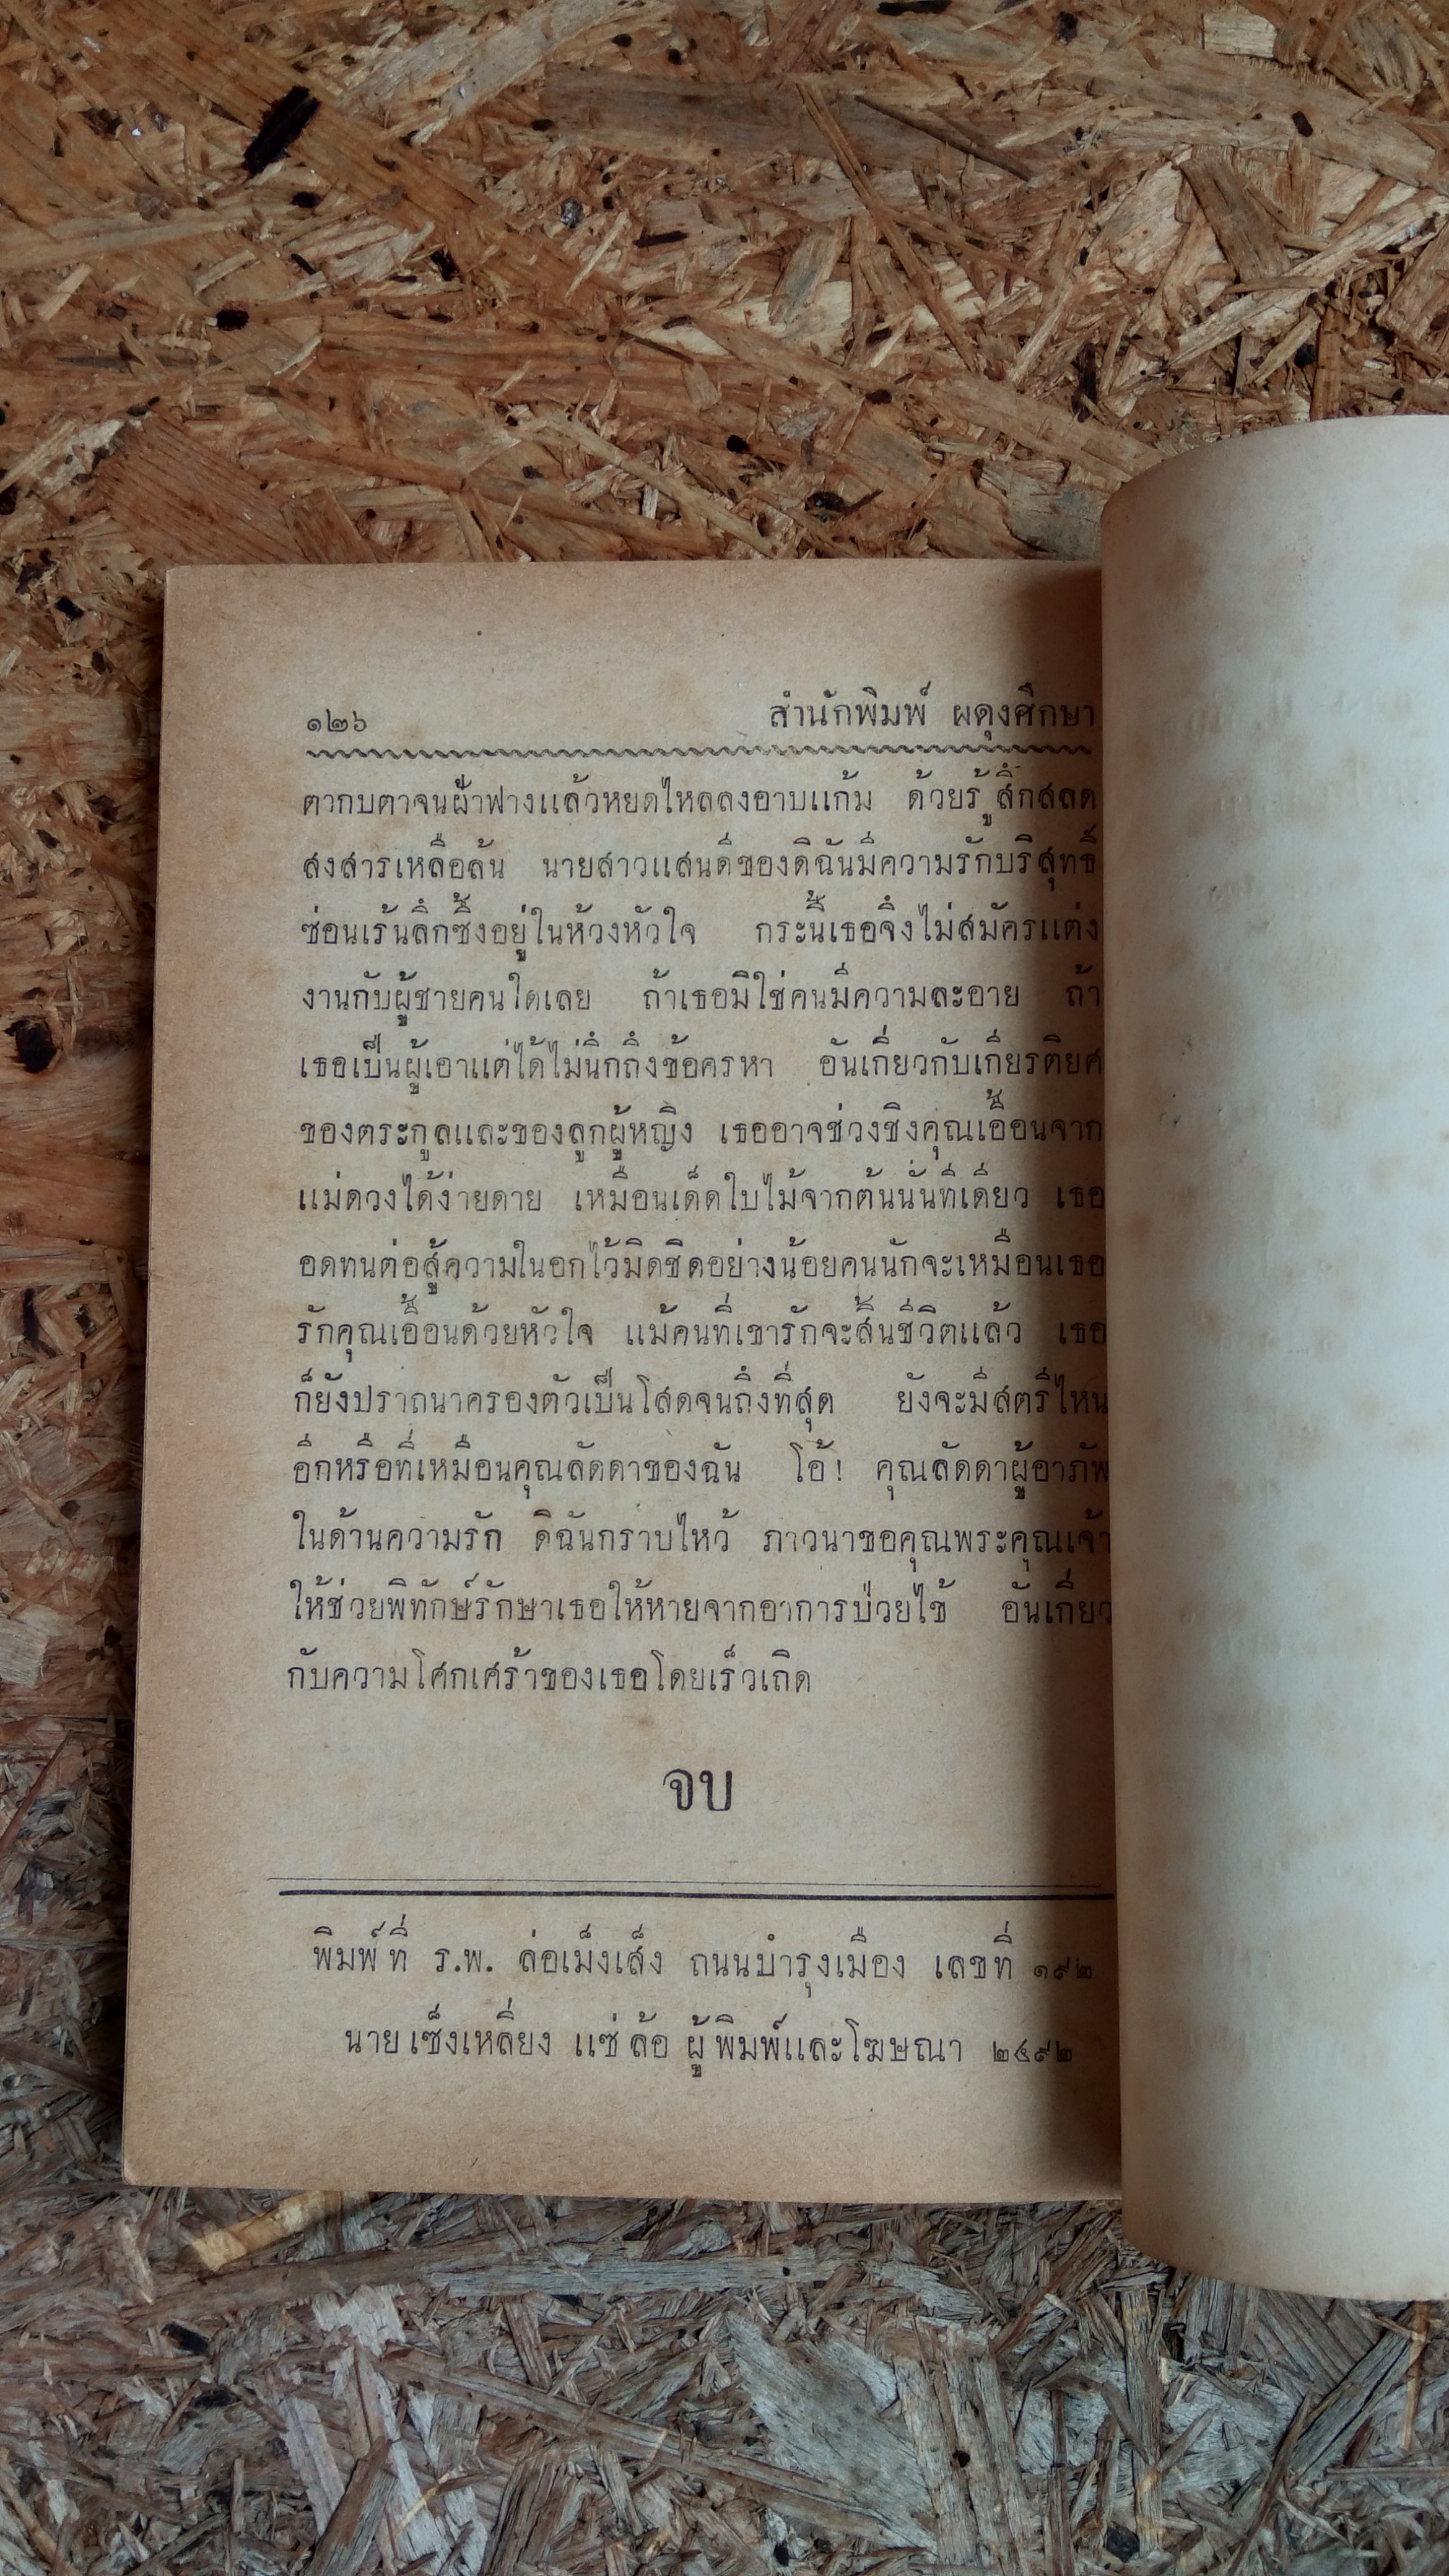 ๑๒๖ สำนักพิมพ์ ผดุงศึกษา
ตากบตาจนฝ้าฟางแล้วหยดไหลลงอาบแก้ม ด้วยรู้สึกสลด
สงสารเหลือล้น นายสาวแสนดีของดิฉันมีความรักบริสุทธิ์
ซ่อนเร้นลึกซึ้งอยู่ในห้วงหัวใจ กระนี้เธอจึงไม่สมัครแต่ง
งานกับผู้ชายคนใดเลย ถ้าเธอมิใช่คนมีความละอาย ถ้า
เธอเป็นผู้เอาแต่ได้ไม่นึกถึงข้อครหา อันเกี่ยวกับเกียรติยศ
ของตระกูลและของลูกผู้หญิง เธออาจช่วงชิงคุณเอื้อนจาก
แม่ดวงได้ง่ายดาย เหมือนเด็ดใบไม้จากต้นนั่นทีเดียว เธอ
อดทนต่อสู้ความในอกไว้มิดชิดอย่างน้อยคนนักจะเหมือนเธอ
รักคุณเอื้อนด้วยหัวใจ แม้คนที่เขารักจะสิ้นชีวิตแล้ว เธอ
ก็ยังปราถนาครองตัวเป็นโสดจนถึงที่สุด ยังจะมีสตรีไหน
อีกหรือที่เหมือนคุณลัดดาของฉัน โอ้! คุณลัดดาผู้อาภัพ
ในด้านความรัก ดิฉันกราบไหว้ ภาวนาขอคุณพระคุณเจ้า
ให้ช่วยพิทักษ์รักษาเธอให้หายจากอาการป่วยไข้ อันเกี่ยว
กับความโศกเศร้าของเธอโดยเร็วเถิด
จบ
พิมพ์ที่ ร.พ. ล่อเม็งเส็ง ถนนบำรุงเมือง เลขที่ ๑๙๒
นายเซ็งเหลี่ยง แซ่ล้อ ผู้พิมพ์และโฆษณา ๒๔๙๒